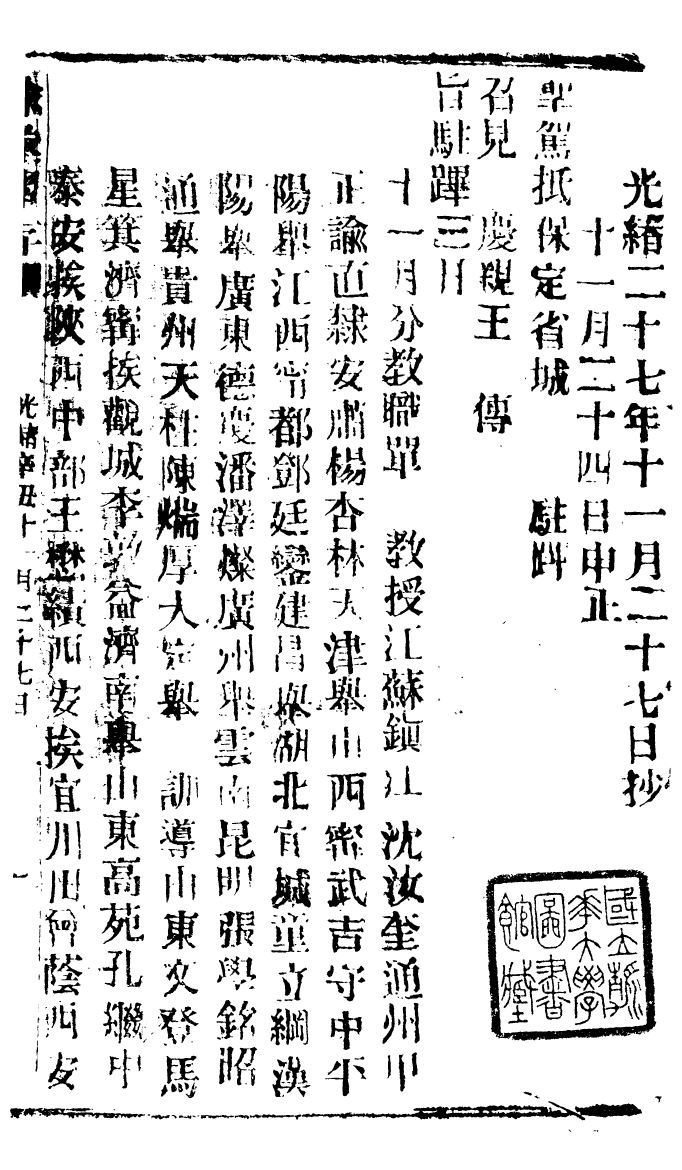 光緒二十七年十一月二十七日抄
十一月二十四日申正
聖駕抵保定省城 駐蹕
召見 慶親王 傳
旨駐蹕三日
十一月分教職單 教授江蘇鎮江沈汝奎通州甲
正諭直隸安肅楊杏林天津舉山西寧武吉守中平
陽舉江西寧都鄧廷鑾建昌舉湖北宜城童立綱漢
陽舉廣東德慶潘澤燦廣州舉雲南昆明張學銘昭
通舉貴州天柱陳煓厚大定舉 訓導山東文登馬
星箕濟甯挨觀城李 益濟南舉山東高苑孔繼中
泰安挨陝西中部王懋績西安挨宜川田 蔭西安
光緒辛丑十一月二十七日
一
國立清華大學圖書館藏